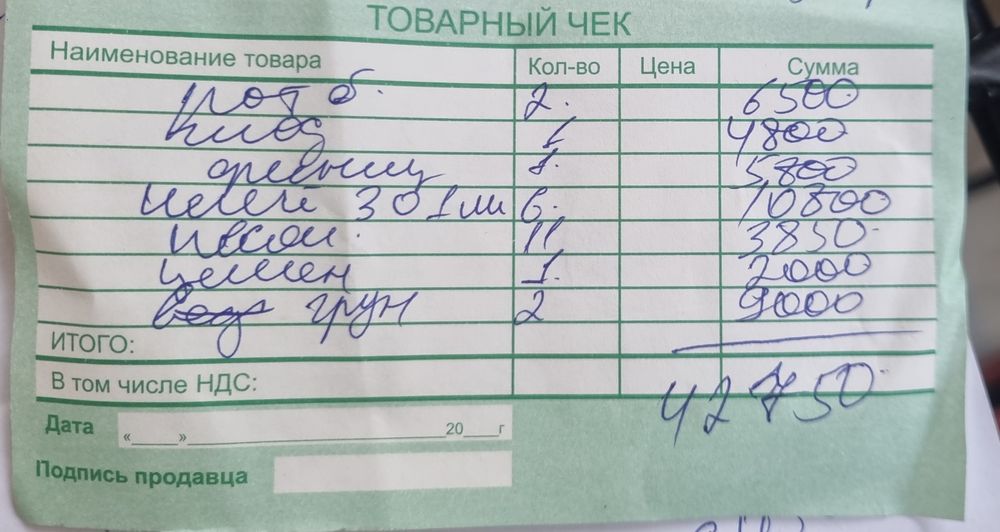 ТОВАРНЫЙ ЧЕК
Наименование товара Кол-во Цена Сумма
рот б. 2. 6500
1 4800
1. 5800
301 6. 10800
песок. 11 3850
цемен 1. 2000
грун 2 9000
ИТОГО:
В том числе НДС: 42750
Дата «____»____________20___г
Подпись продавца